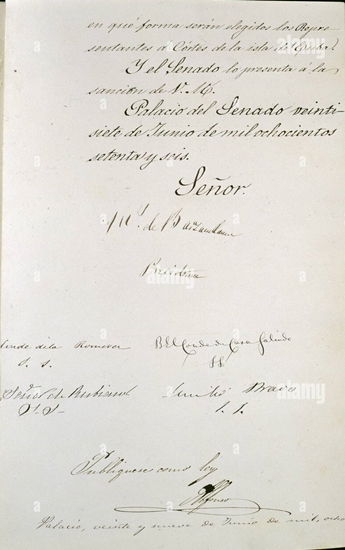 en qué forma serán elegidos los Repre-
sentantes a Córtes de la isla de Cuba.
Y el Senado lo presenta á la
sanción de V. M.
Palacio del Senado veinti-
siete de Junio de mil ochocientos
setenta y seis.
Señor.
M. de Barzanallana
Presidente
Conde de la Romera
S. S.
B El Conde de Casa Galindo
S S
Señor de Rubianes
S. S.
Emilio Bravo
S. S.
Publíquese como ley
Alfonso
Palacio, veinte y nueve de Junio de mil, ocho
alamy